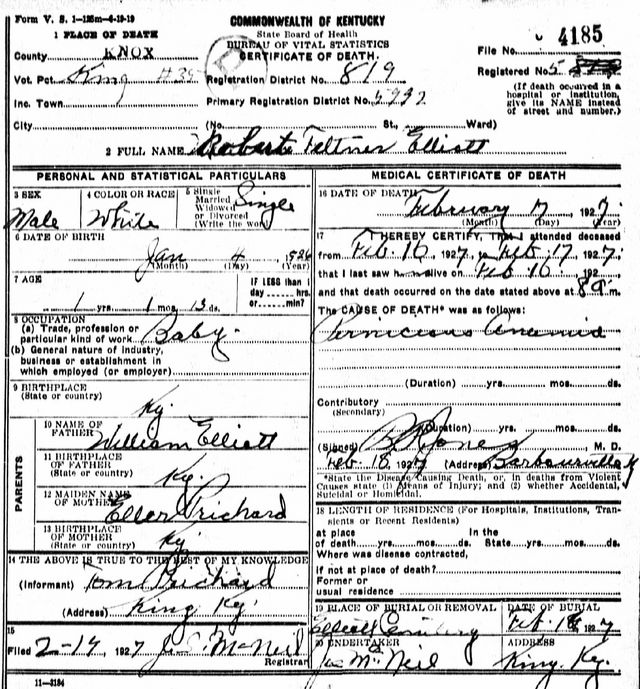 Form V. S. 1—125m—4-19-19
COMMONWEALTH OF KENTUCKY
State Board of Health
BUREAU OF VITAL STATISTICS
CERTIFICATE OF DEATH.
4185
File No.
1 PLACE OF DEATH
County KNOX
Vot. Pct. King #35
Registration District No. 819
Registered No. 5
Inc. Town
Primary Registration District No. 5937
(If death occurred in a
hospital or institution,
give its NAME instead
of street and number.)
City (No. St., Ward)
2 FULL NAME Robert Feltner Elliott
PERSONAL AND STATISTICAL PARTICULARS
3 SEX
Male
4 COLOR OR RACE
White
5 Single
Married
Widowed
or Divorced
(Write the word)
Single
6 DATE OF BIRTH
Jan 4 1926
(Month) (Day) (Year)
7 AGE
1 yrs. 1 mos. 13 ds.
IF LESS than 1
day hrs.
or min?
8 OCCUPATION
(a) Trade, profession or
particular kind of work Baby
(b) General nature of industry,
business or establishment in
which employed (or employer)
9 BIRTHPLACE
(State or country)
Ky.
PARENTS
10 NAME OF
FATHER
William Elliott
11 BIRTHPLACE
OF FATHER
(State or country)
Ky.
12 MAIDEN NAME
OF MOTHER
Ellen Prichard
13 BIRTHPLACE
OF MOTHER
(State or country)
Ky
14 THE ABOVE IS TRUE TO THE BEST OF MY KNOWLEDGE
(Informant) Tom Prichard
(Address) King Ky.
15
Filed 2-17, 1927 J. S. McNeil
Registrar
11—3184
MEDICAL CERTIFICATE OF DEATH
16 DATE OF DEATH
February 17, 1927
(Month) (Day) (Year)
17 I HEREBY CERTIFY, That I attended deceased
from Feb. 16, 1927, to Feb. 17, 1927,
that I last saw h alive on Feb 16, 192
and that death occurred on the date stated above at 8 a m.
The CAUSE OF DEATH* was as follows:
Pernicious Anemia
(Duration) yrs. mos. ds.
Contributory
(Secondary)
(Duration) yrs. mos. ds.
(Signed) Jones, M. D.
Feb. 18, 1927 (Address) Barbourville Ky
*State the Disease Causing Death, or, in deaths from Violent
Causes state (1) Means of Injury; and (2) whether Accidental,
Suicidal or Homicidal.
18 LENGTH OF RESIDENCE (For Hospitals, Institutions, Tran-
sients or Recent Residents)
at place In the
of death yrs. mos. ds. State yrs. mos. ds.
Where was disease contracted,
if not at place of death?
Former or
usual residence
19 PLACE OF BURIAL OR REMOVAL
Elliott Cemetery
DATE OF BURIAL
Feb. 18, 1927
20 UNDERTAKER
McNeil
ADDRESS
King, Ky.